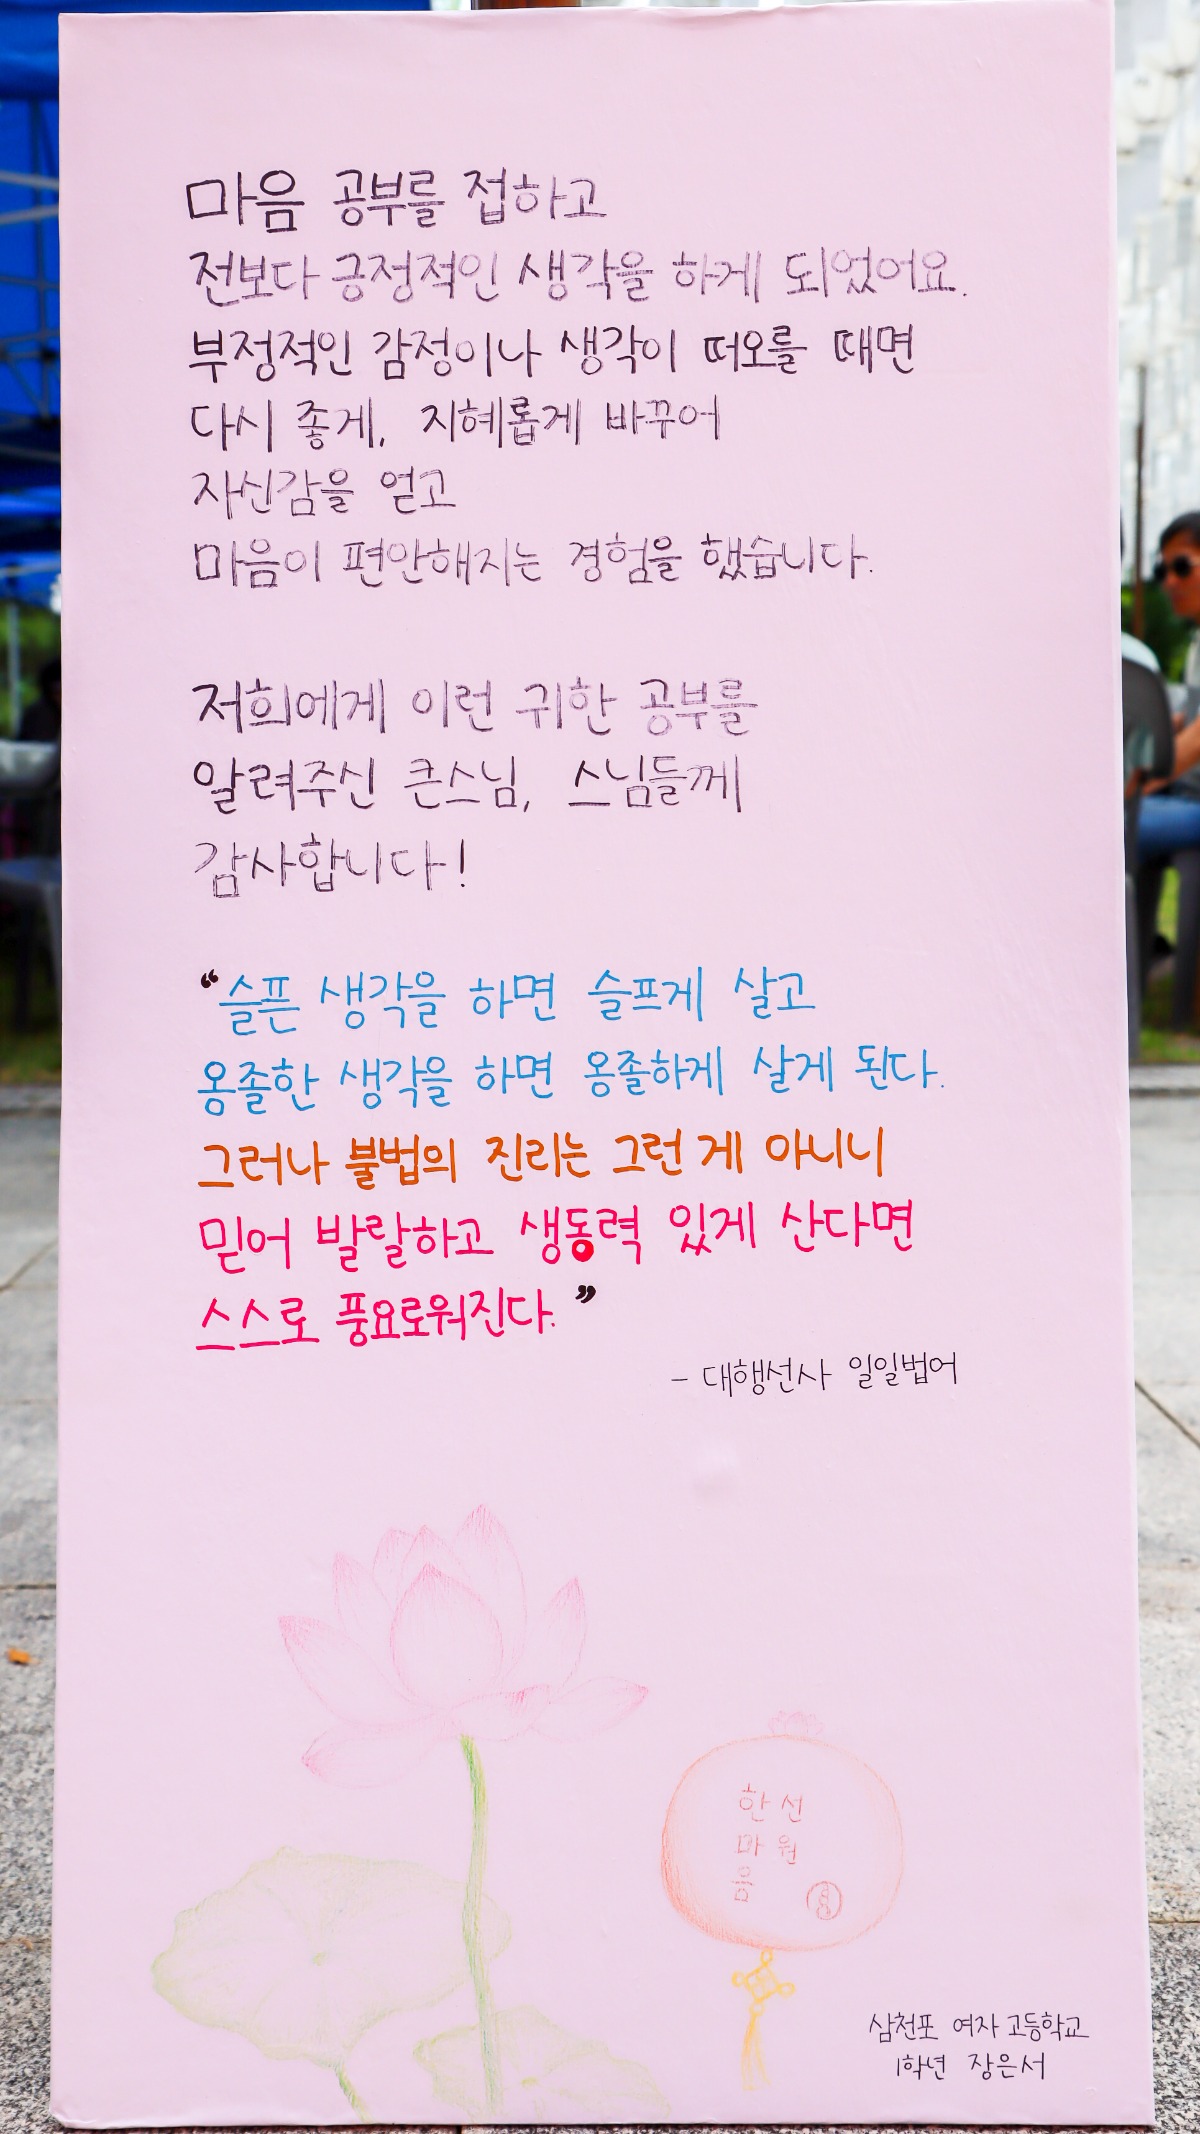 마음 공부를 접하고
전보다 긍정적인 생각을 하게 되었어요.
부정적인 감정이나 생각이 떠오를 때면
다시 좋게, 지혜롭게 바꾸어
자신감을 얻고
마음이 편안해지는 경험을 했습니다.
저희에게 이런 귀한 공부를
알려주신 큰스님, 스님들께
감사합니다!
“슬픈 생각을 하면 슬프게 살고
옹졸한 생각을 하면 옹졸하게 살게 된다.
그러나 불법의 진리는 그런 게 아니니
믿어 발랄하고 생동력 있게 산다면
스스로 풍요로워진다.”
- 대행선사 일일법어
한마음
선원
삼천포 여자 고등학교
1학년 장은서